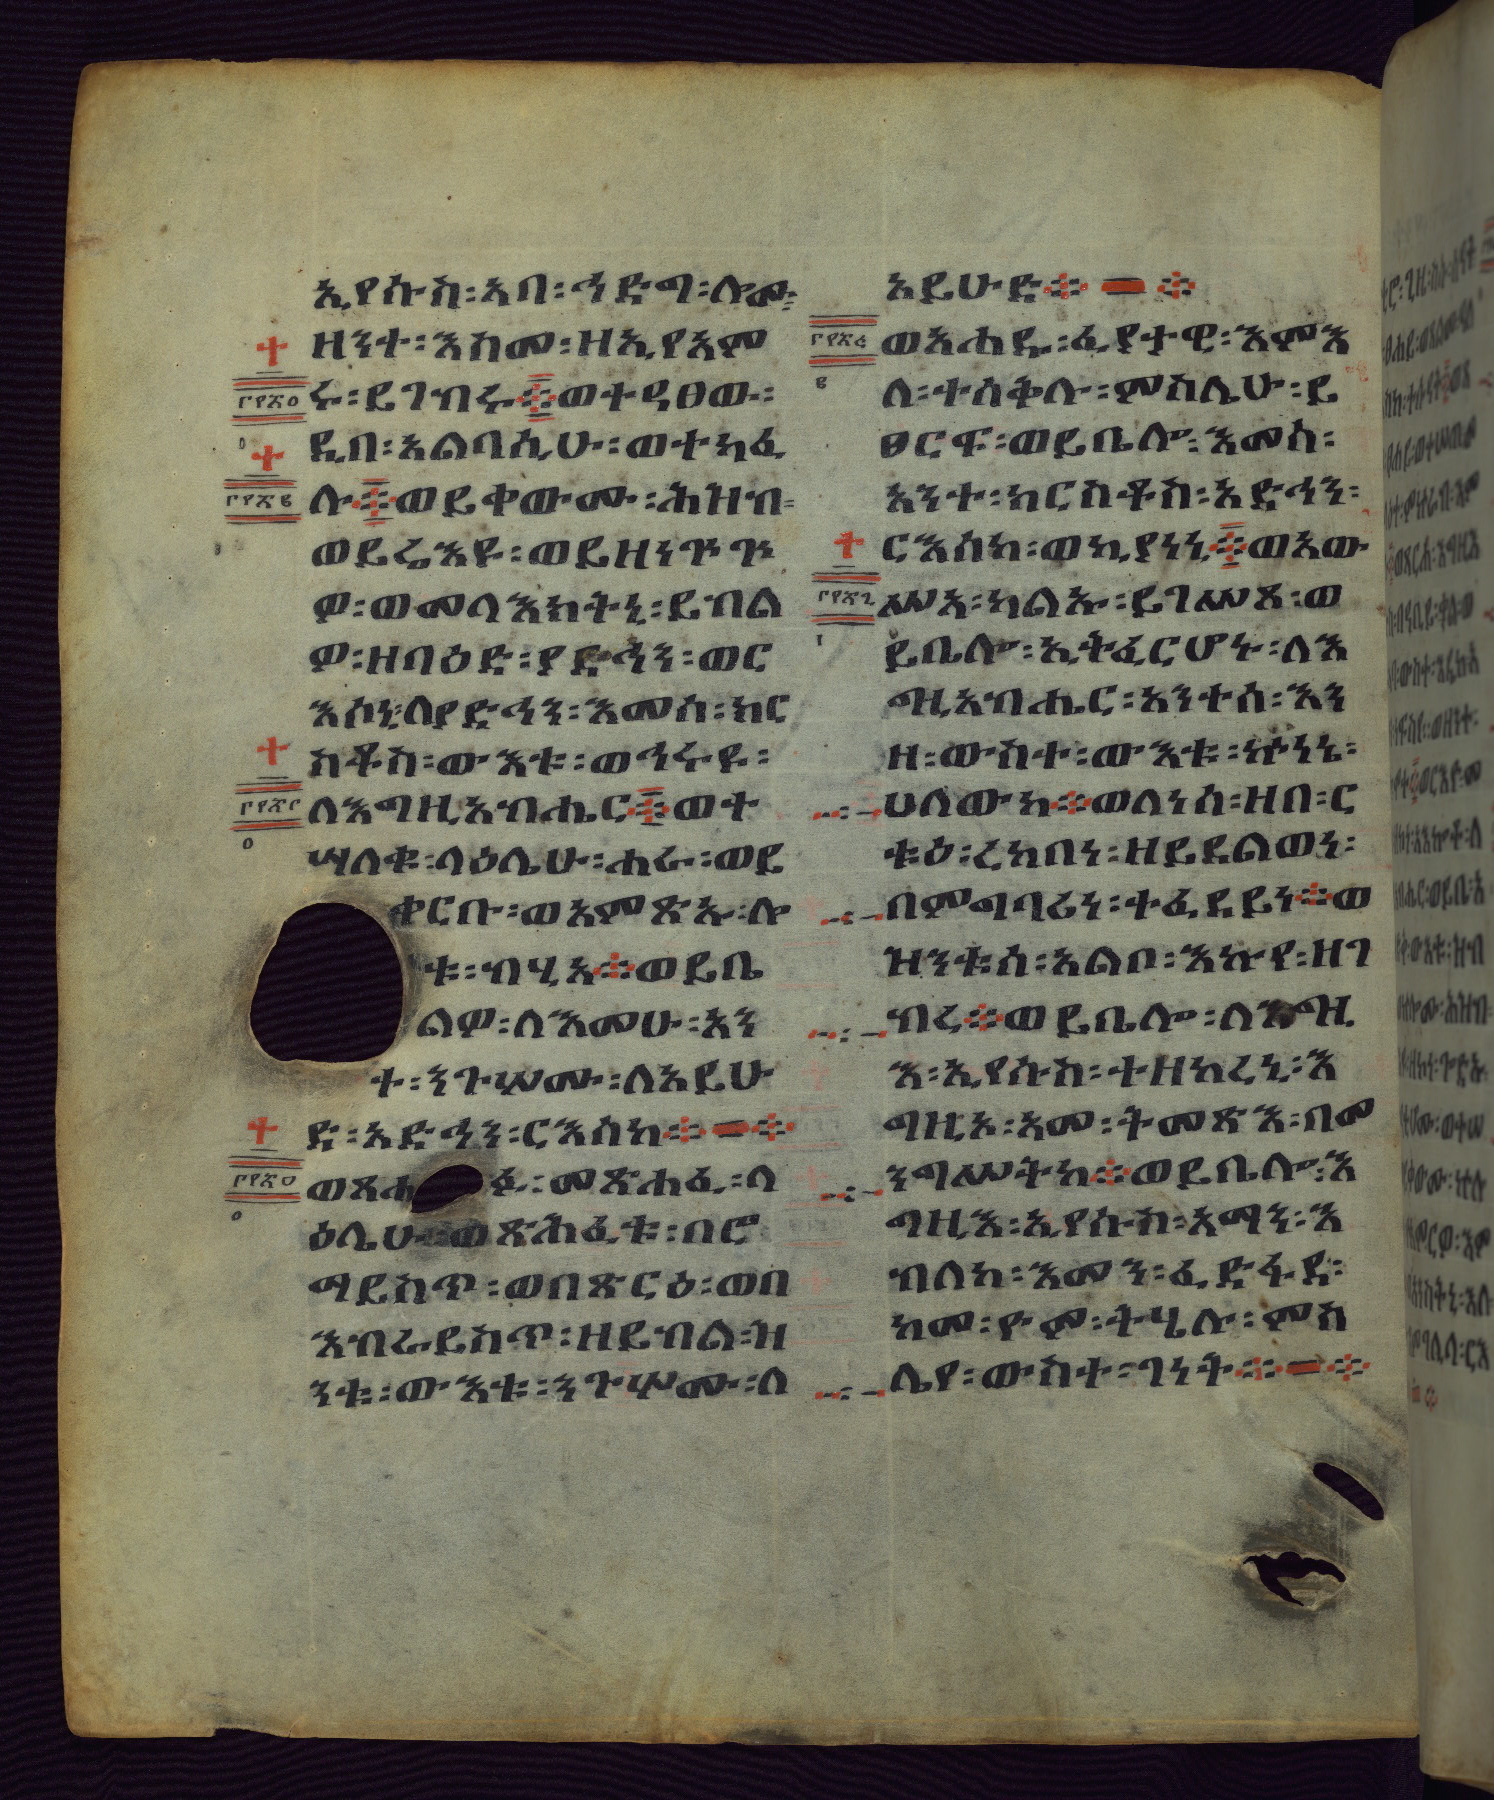 ኢየሱስ፡አባ፡ኅድግ፡ሎሙ፡
ዘንተ፡እስመ፡ዘኢየአም
ሩ፡ይገብሩ፨ወተዳፀው፡
ዲበ፡አልባሲሁ፡ወተካፈ
ሉ፨ወይቀውሙ፡ሕዝብ፡
ወይሬእዩ፡ወይዘነጕጕ
ዎ፡ወመላእክትኒ፡ይብል
ዎ፡ዘባዕድ፡ያድኅን፡ወር
እሶኒ፡ለያድኅን፡እመስ፡ክር
ስቶስ፡ውእቱ፡ወኅሩዩ፡
ለእግዚአብሔር፨ወተ
ሣለቁ፡ላዕሌሁ፡ሐራ፡ወይ
ቀርቡ፡ወአምጽኡ፡ሎ
ቱ፡ብሂአ፨ወይቤ
ልዎ፡ለእመሁ፡አን
ተ፡ንጉሦሙ፡ለአይሁ
ድ፡አድኅን፡ርእስከ፨
ወጸሐፉ፡መጽሐፈ፡ላ
ዕሌሁ፡ወጽሕፈቱ፡በሮ
ማይስጥ፡ወበጽርዕ፡ወበ
እብራይስጥ፡ዘይብል፡ዝ
ንቱ፡ውእቱ፡ንጉሦሙ፡ለ
አይሁድ፨
ወአሐዱ፡ፈያታዊ፡እምእ
ለ፡ተሰቅሉ፡ምስሌሁ፡ይ
ፀርፍ፡ወይቤሎ፡እመስ፡
አንተ፡ክርስቶስ፡አድኅን፡
ርእሰከ፡ወኪያነነ፨ወአው
ሥአ፡ካልኡ፡ይገሥጾ፡ወ
ይቤሎ፡ኢትፈርሆኑ፡ለእ
ግዚአብሔር፡አንተሰ፡እን
ዘ፡ውስተ፡ውእቱ፡ኵነኔ፡
ሀለውከ፨ወለነሰ፡ዘበ፡ር
ቱዕ፡ረከበነ፡ዘይደልወነ፡
በምግባሪነ፡ተፈደይነ፨ወ
ዝንቱሰ፡አልቦ፡እኩየ፡ዘገ
ብረ፨ወይቤሎ፡ለእግዚ
እ፡ኢየሱስ፡ተዘከረኒ፡እ
ግዚኦ፡አመ፡ትመጽእ፡በመ
ንግሥትከ፨ወይቤሎ፡እ
ግዚእ፡ኢየሱስ፡አማን፡እ
ብለከ፡እመን፡ፈድፋደ፡
ከመ፡ዮም፡ትሄሉ፡ምስ
ሌየ፡ውስተ፡ገነት፨